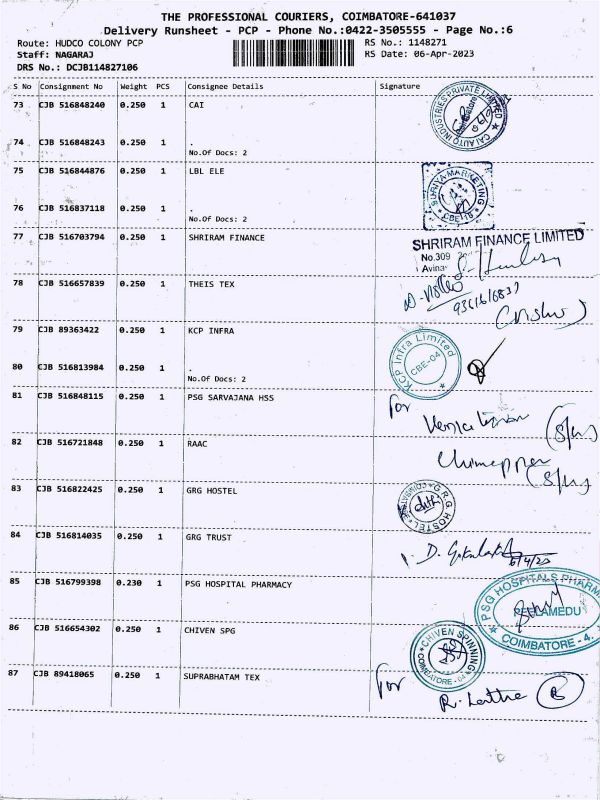 THE PROFESSIONAL COURIERS, COIMBATORE-641037
Delivery Runsheet - PCP - Phone No.:0422-3505555 - Page No.:6
Route: HUDCO COLONY PCP RS No.: 1148271
Staff: NAGARAJ RS Date: 06-Apr-2023
DRS No.: DCJB114827106
S No Consignment No Weight PCS Consignee Details Signature
73 CJB 516848240 0.250 1 CAI
CAI AUTO INDUSTRIES PRIVATE LIMITED
74 CJB 516848243 0.250 1 .
No.Of Docs: 2
75 CJB 516844876 0.250 1 LBL ELE
SURIYA MARKETING
76 CJB 516837118 0.250 1 .
No.Of Docs: 2
77 CJB 516703794 0.250 1 SHRIRAM FINANCE
SHRIRAM FINANCE LIMITED
No.309
Avina
78 CJB 516657839 0.250 1 THEIS TEX
79 CJB 89363422 0.250 1 KCP INFRA
KCP Infra Limited
CBE-04
80 CJB 516813984 0.250 1 .
No.Of Docs: 2
81 CJB 516848115 0.250 1 PSG SARVAJANA HSS
For
82 CJB 516721848 0.250 1 RAAC
83 CJB 516822425 0.250 1 GRG HOSTEL
G.R.G. HOSTEL
84 CJB 516814035 0.250 1 GRG TRUST
6/4/23
85 CJB 516799398 0.230 1 PSG HOSPITAL PHARMACY
PSG HOSPITALS PHARM
PEELAMEDU
COIMBATORE - 4.
86 CJB 516654302 0.250 1 CHIVEN SPG
CHIVEN SPINNING
COIMBATORE
87 CJB 89418065 0.250 1 SUPRABHATAM TEX
For
R. Latha